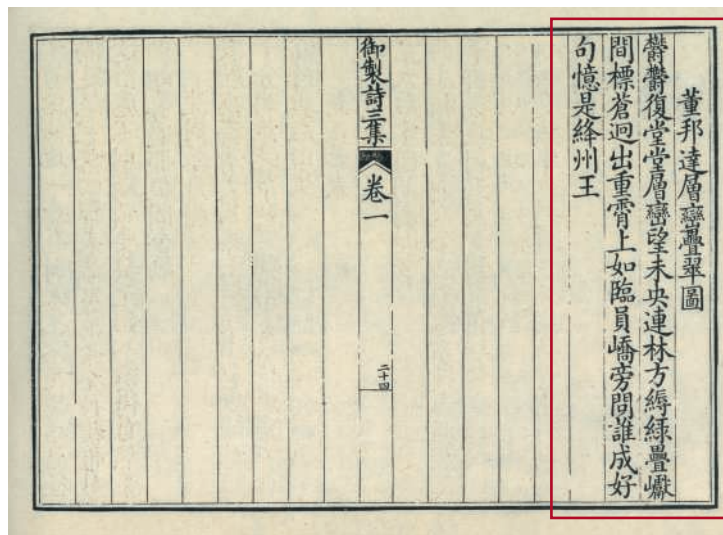 董邦達層巒疊翠圖
欝欝復堂堂層巒望未央連林方縟綠疊巘
間標蒼迥出重霄上如臨員嶠旁問誰成好
句憶是絳州王
御製詩三集
卷一
二十四